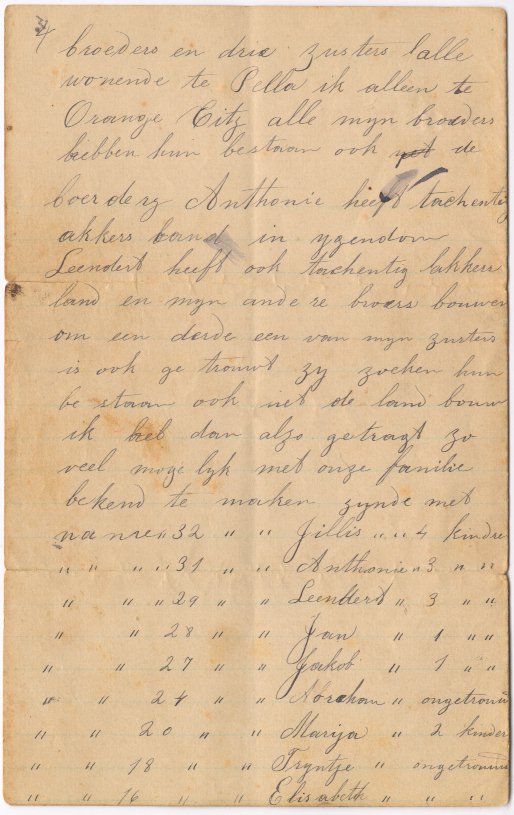 3/4
broeders en drie zusters alle
wonende te Pella ik alleen te
Orange City alle mijn broeders
hebben hun bestaan ook de
boerdery Anthonie heeft tachentig
akkers land in ygendom
Leendert heeft ook tachentig akkers
land en myn andere broers bouwen
om een derde een van myn zusters
is ook ge trouwt zy zoeken hun
be staan ook uit de land bouw
ik heb dan alzo getragt zo
veel mogelyk met onze familie
bekend te maken zynde met
name " 32 " " Jillis " " 4 kindre
" " " " 31 " " Anthonie " 3 " "
" " " 29 " " Leendert " 3 " "
" " 28 " " Jan " 1 " "
" " 27 " " Jakob " 1 " "
" " 24 " " Abraham " ongetrouwt
" " 20 " " Marija " 2 kinder
" " 18 " " Tryntje " ongetrouwt
" " 16 " " Elisabeth " " "